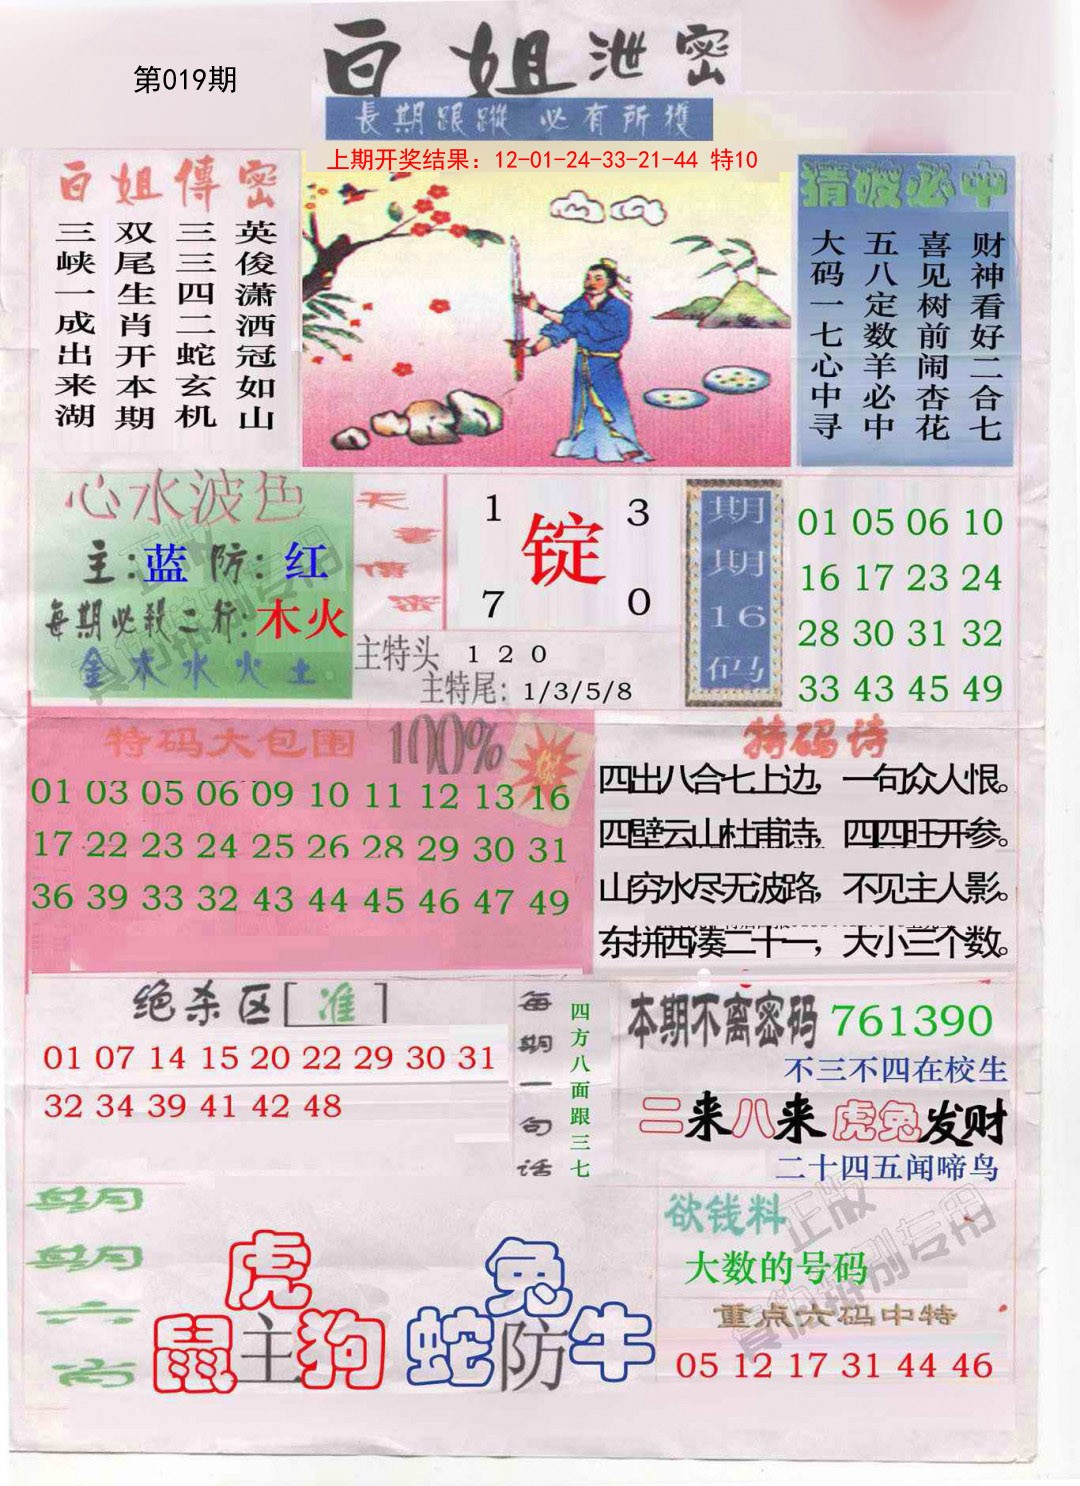 第019期
白姐泄密
長期跟蹤 必有所獲
上期开奖结果：12-01-24-33-21-44 特10
白姐傳密
英俊潇洒冠如山
三三四二蛇玄机
双尾生肖开本期
三峡一成出来湖
猜破必中
财神看好二合七
喜见树前闹杏花
五八定数羊必中
大码一七心中寻
心水波色
主:蓝 防:红
每期必殺二行:木火
金木水火土
天書傳密
1 3
锭
7 0
主特头 1 2 0
主特尾: 1/3/5/8
期期16码
01 05 06 10
16 17 23 24
28 30 31 32
33 43 45 49
特码大包围 100%
01 03 05 06 09 10 11 12 13 16
17 22 23 24 25 26 28 29 30 31
36 39 33 32 43 44 45 46 47 49
特码诗
四出八合七上边，一句众人恨。
四壁云山杜甫诗，四四旺开参。
山穷水尽无波路，不见主人影。
东拼西凑二十一，大小三个数。
绝杀区[准]
01 07 14 15 20 22 29 30 31
32 34 39 41 42 48
每期一句话
四方八面跟三七
本期不离密码 761390
不三不四在校生
二来八来 虎兔发财
二十四五闻啼鸟
期期六肖
虎
鼠主狗
兔
蛇防牛
欲钱料
大数的号码
重点六码中特
05 12 17 31 44 46